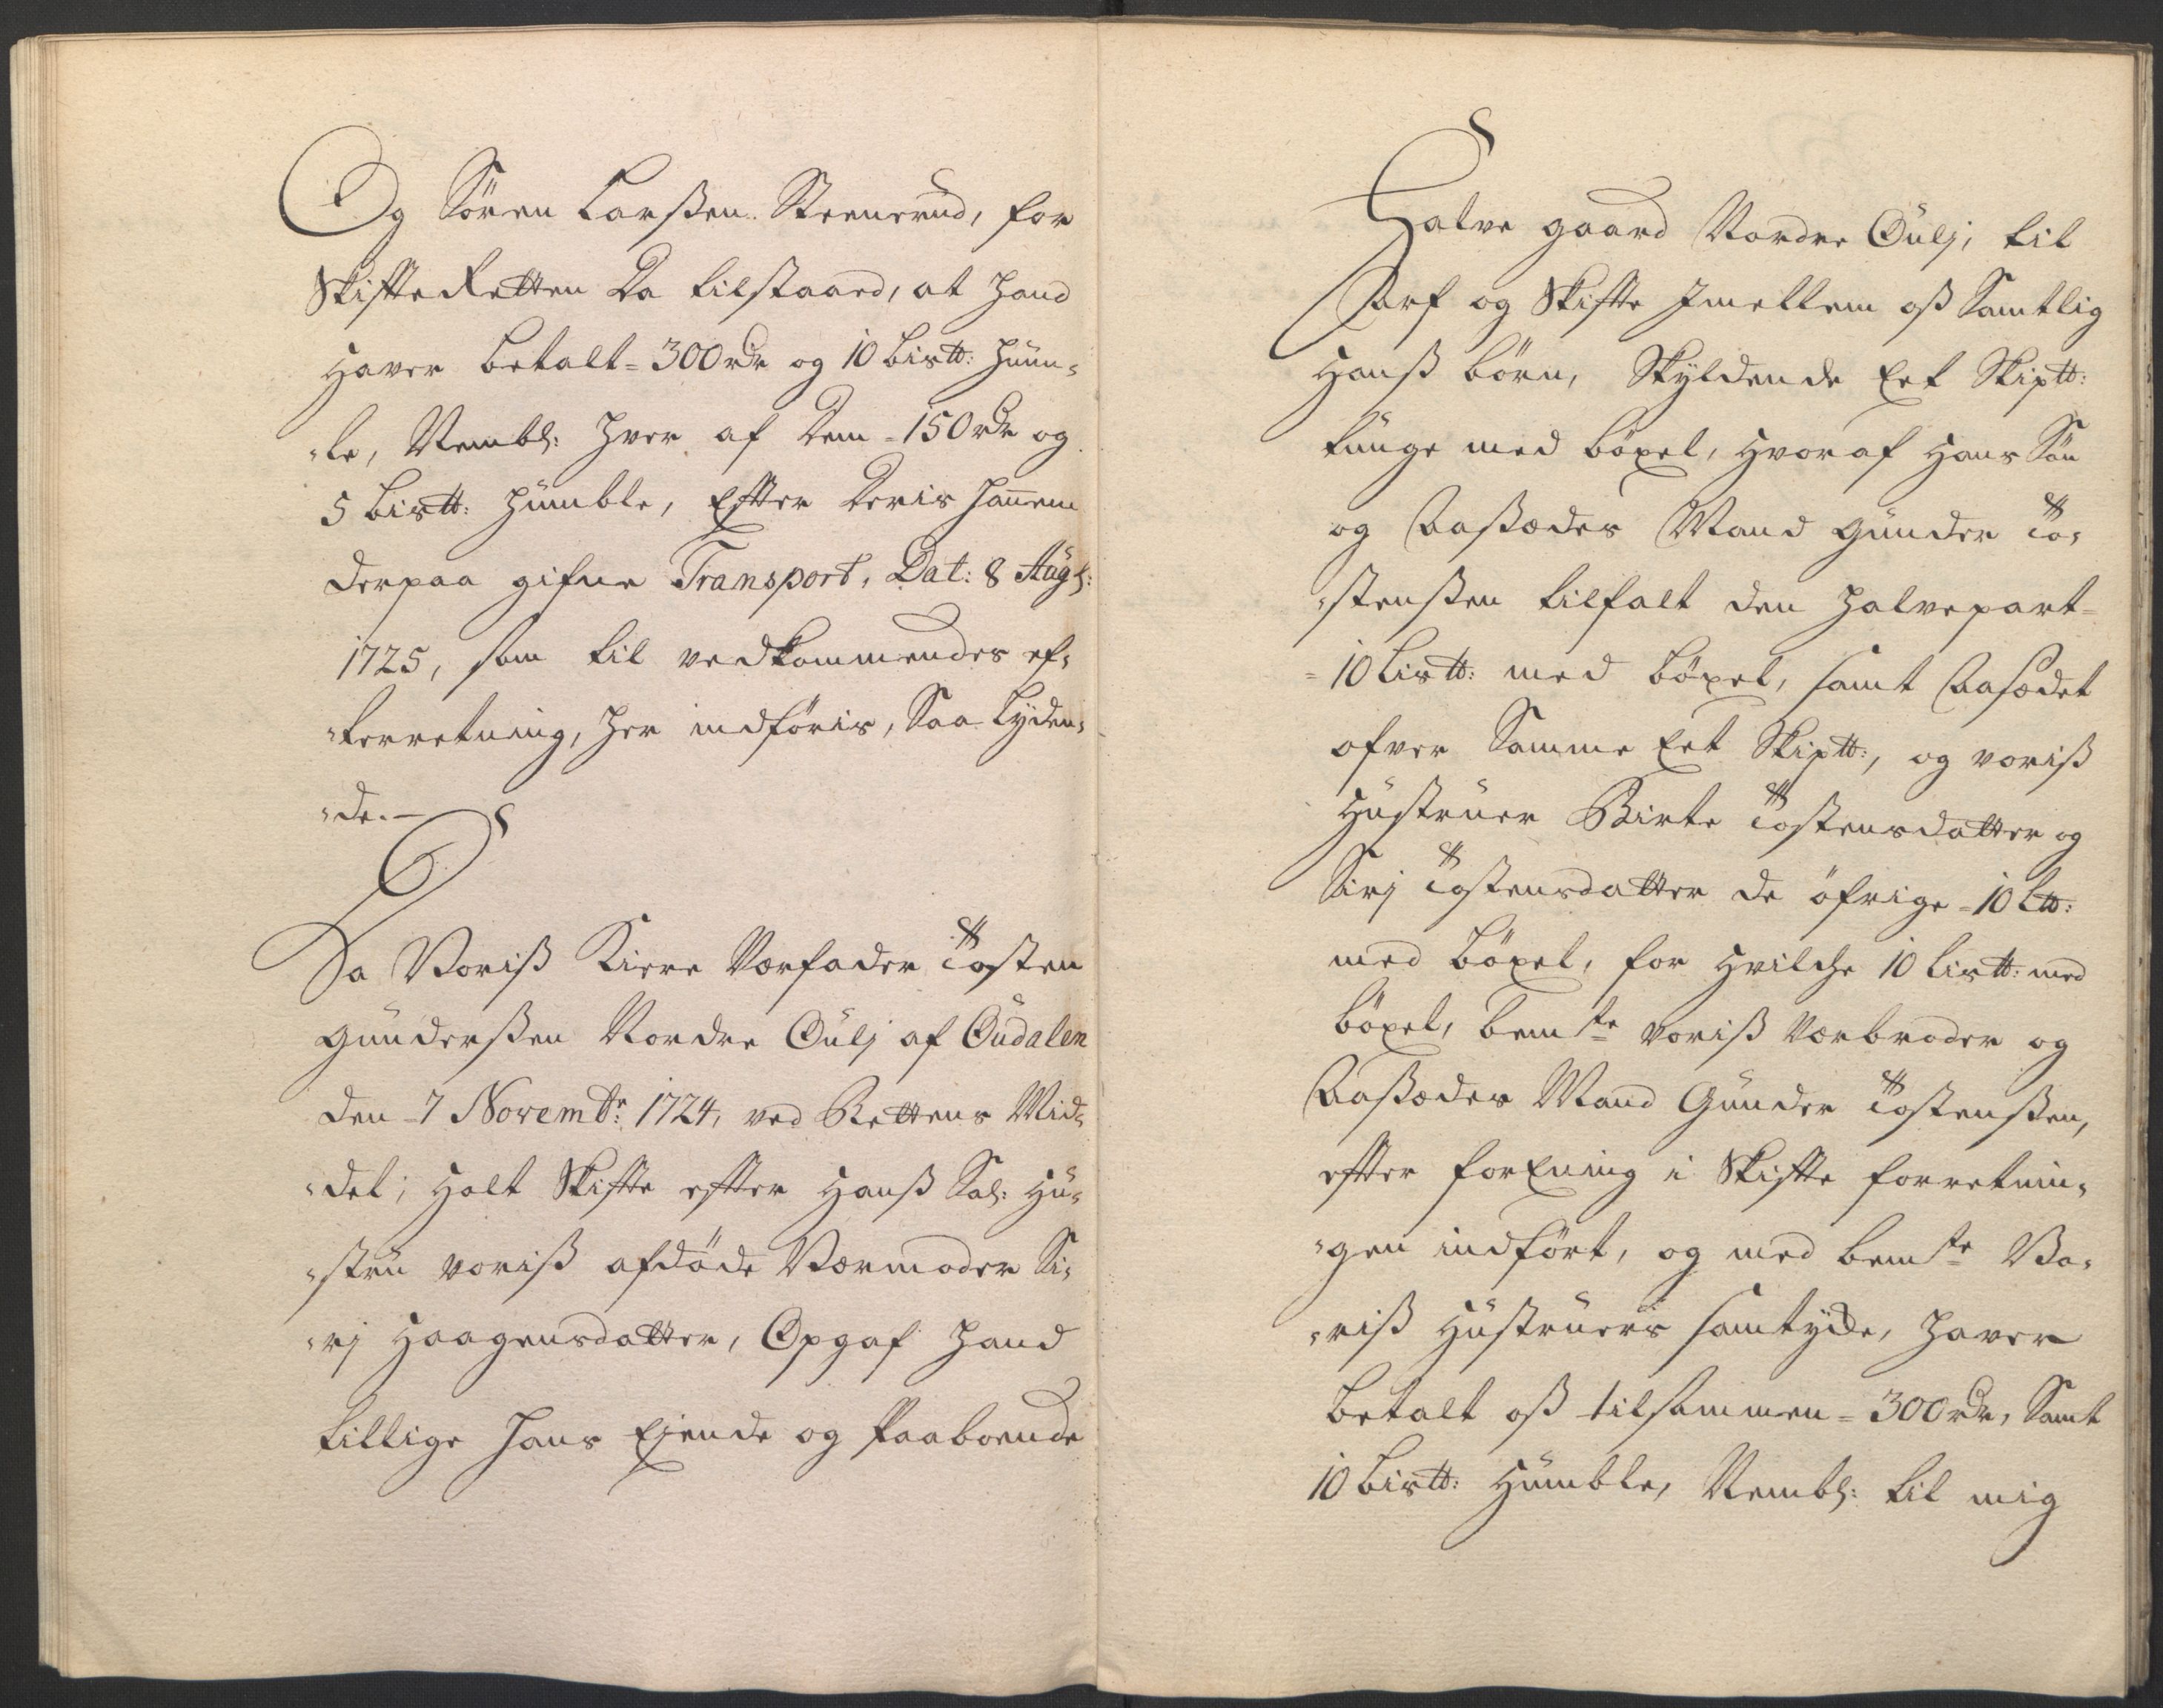 Og Sören Larßen Steenerud, for
SkifteRetten da tilstaaed, at hand
haver betalt = 300 rdr og 10 bis℔: hüm-
-le, Nembl: hver af dem = 150 rdr og
5 bis℔: hümble, Efter deris hannem
derpaa gifne Transport, Dat: 8 Augs:
1725, som til vedkommendes ef-
-terretning, her indföris, Saa lyden-
-de.-
Da Voris Kiere Verfader Tosten
Gunderßen Nordre Öulj af Öudalen
den 7 Novembr: 1724, ved Rettens Mid-
-del; holt Skifte efter hanß Sal: hu-
-stru voriß afdöde Vermoder Si-
-rj Haagensdatter, Opgaf hand
tillige hans Ejende og Paaboende
Halve gaard Nordre Öulj, til
Arf og Skifte Imellem oß Samtlig
hanß börn, Skyldende Eet Skip℔:
tunge med böxel, hvoraf hans Sön
og Aaßædes Mand Gunder To-
-stenßen tilfalt den halvepart
= 10 Lis℔: med böxel, samt Aasædet
ofver Samme Eet Skip℔:, og voriß
Hustruer Birte Tostensdatter og
Sirj Tostensdatter de öfrige = 10 L℔:
med böxel, for hvilche 10 Lis℔: med
böxel, bemte voriß Verbroder og
Aaßædes Mand Gunder Tostenßen,
efter forEning i Skifte forretnin-
-gen indfört, og med bemte Vo-
-riß Hustruers samtyche, haver
betalt oß tilsammen = 300 rdr, Samt
10 bis℔: Humble, Nembl: til mig